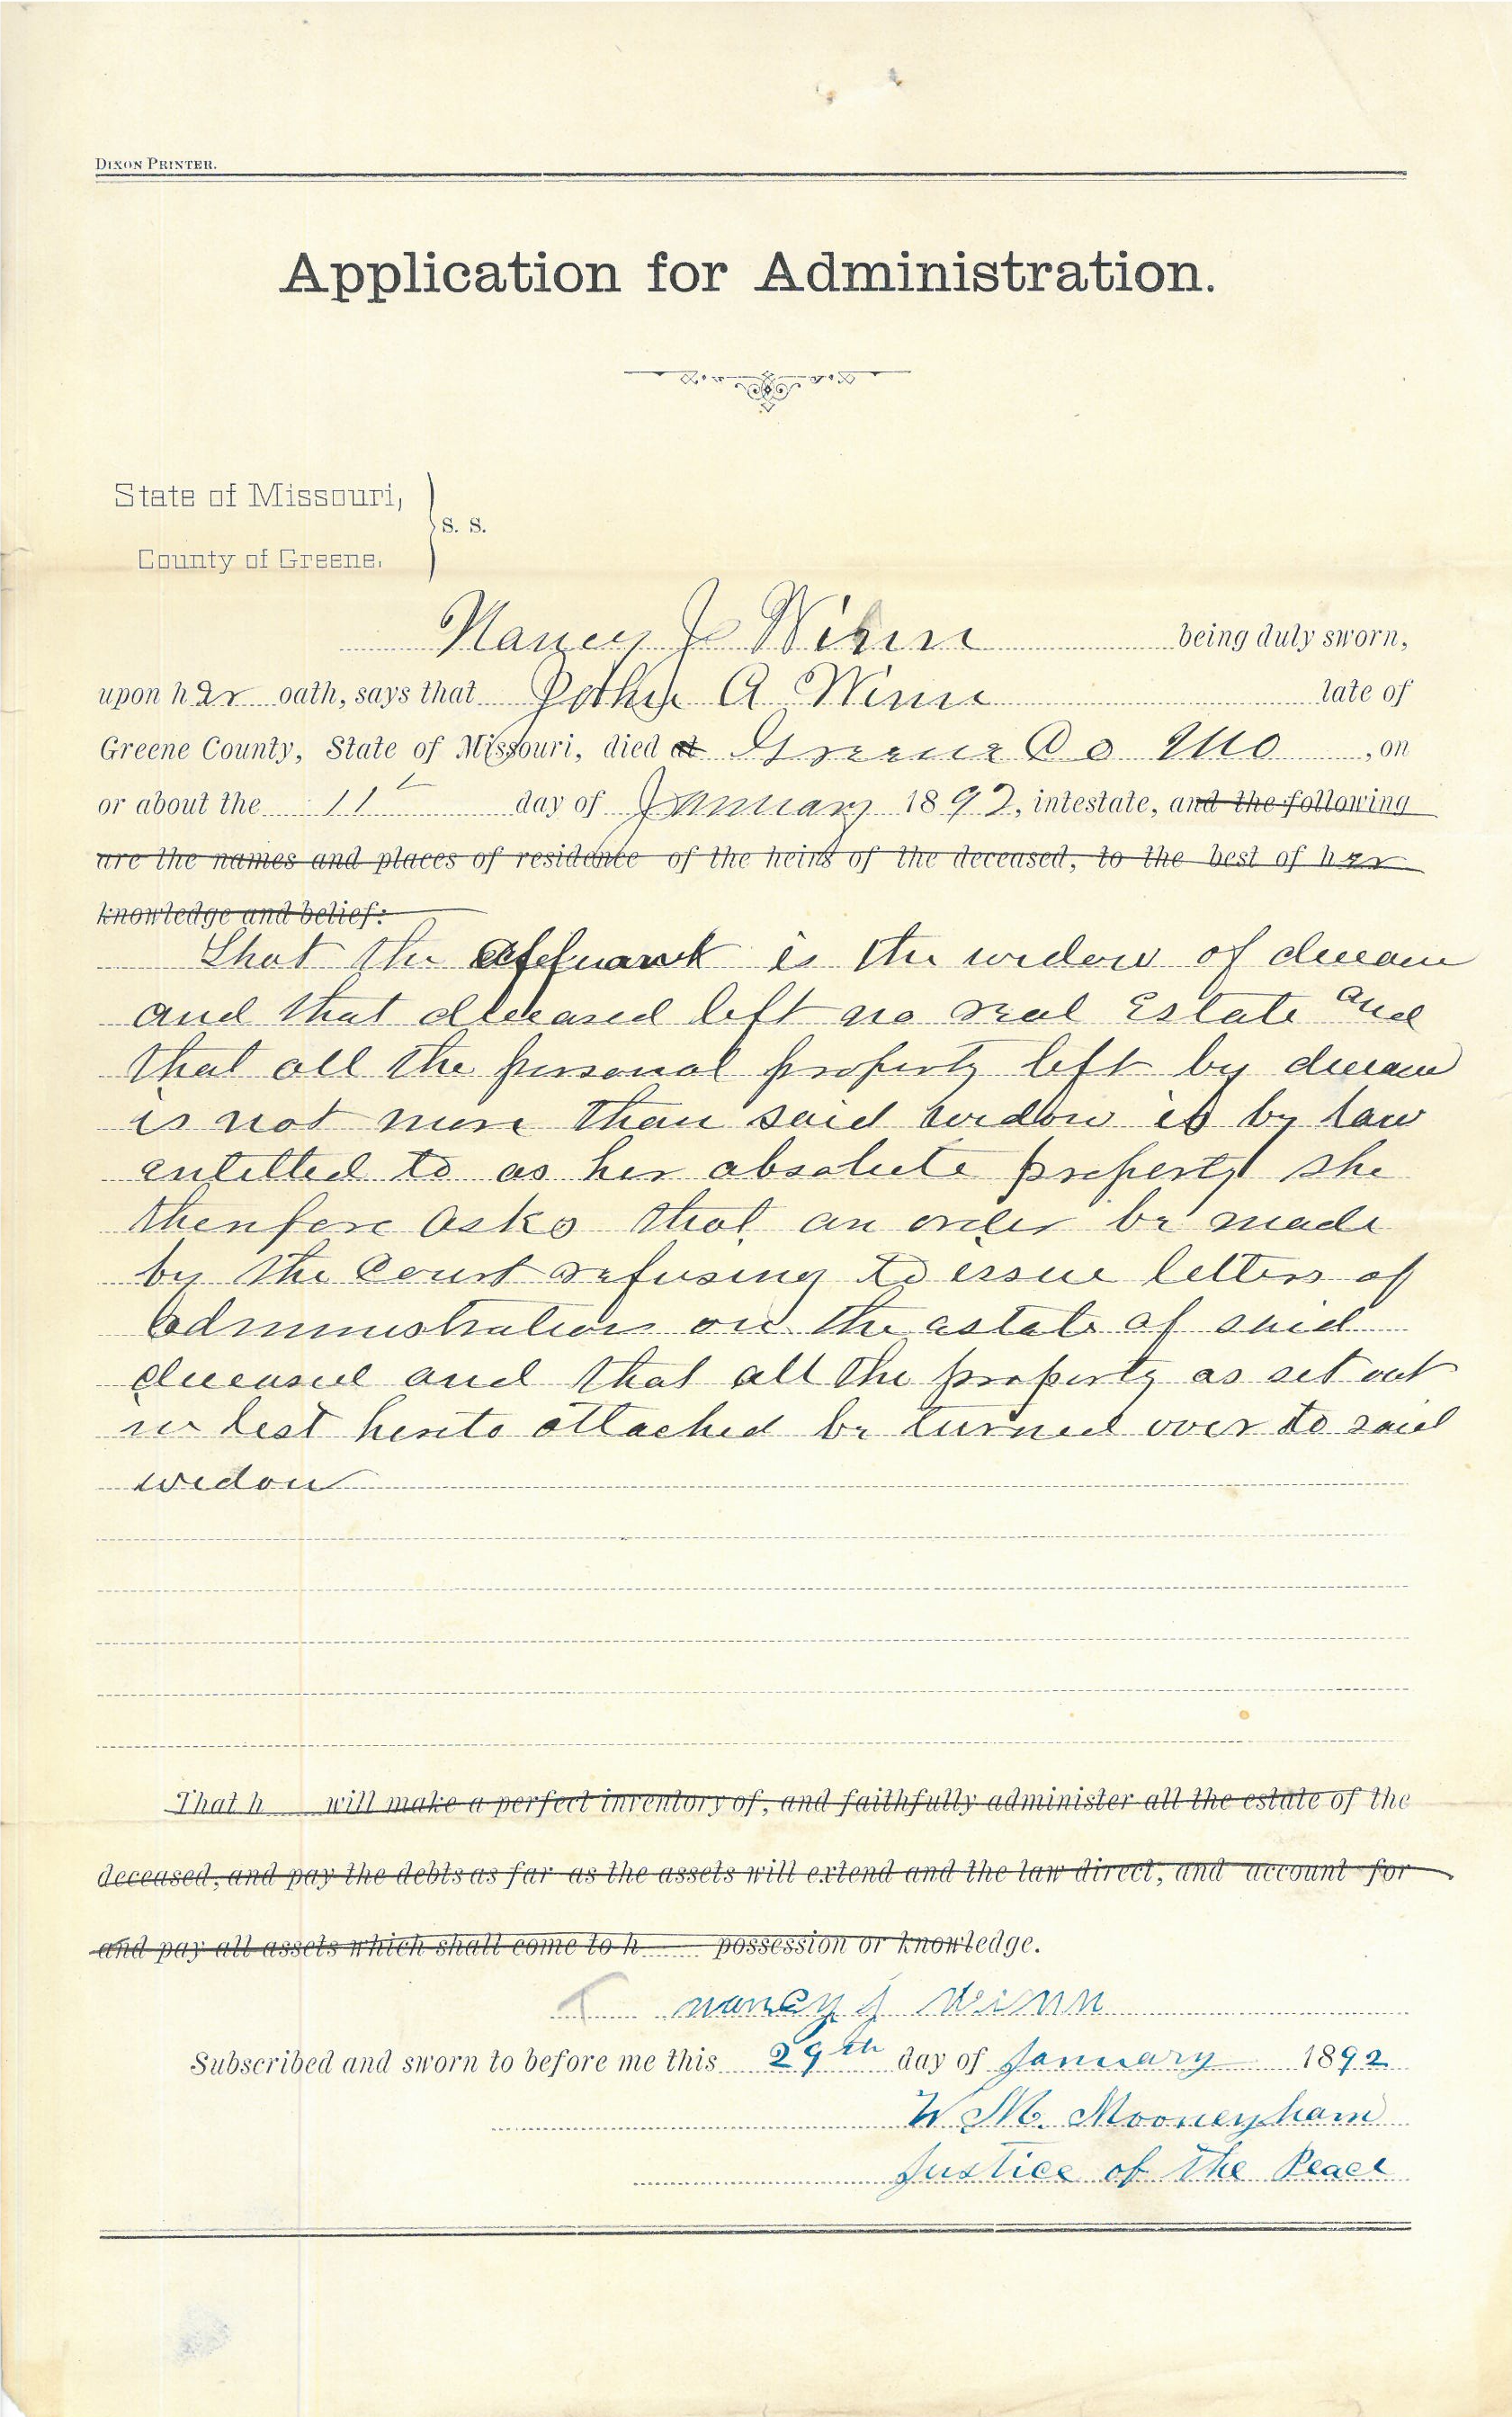 DIXON PRINTER.
Application for Administration.
State of Missouri,
S. S.
County of Greene.
Nancy J Winn being duly sworn,
upon her oath, says that A Winn late of
Greene County, State of Missouri, died at Greene Co Mo, on
or about the 11 day of January 1892, intestate, and the following
are the names and places of residence of the heirs of the deceased, to the best of her
knowledge and belief:
That the affiant is the widow of
and that deceased left no real Estate and
that all the personal property left by
is not more than said widow is by law
entitled to as her absolute property she
therefore asks that an order be made
by the Court refusing to issue letters of
administration on the estate of said
deceased and that all the property as set out
in list hereto attached be turned over to said
widow
That h will make a perfect inventory of, and faithfully administer all the estate of the
deceased, and pay the debts as far as the assets will extend and the law direct, and account for
and pay all assets which shall come to h possession or knowledge.
nancy j winn
Subscribed and sworn to before me this 29th day of January 1892
W. M. Mooneyham
Justice of the Peace